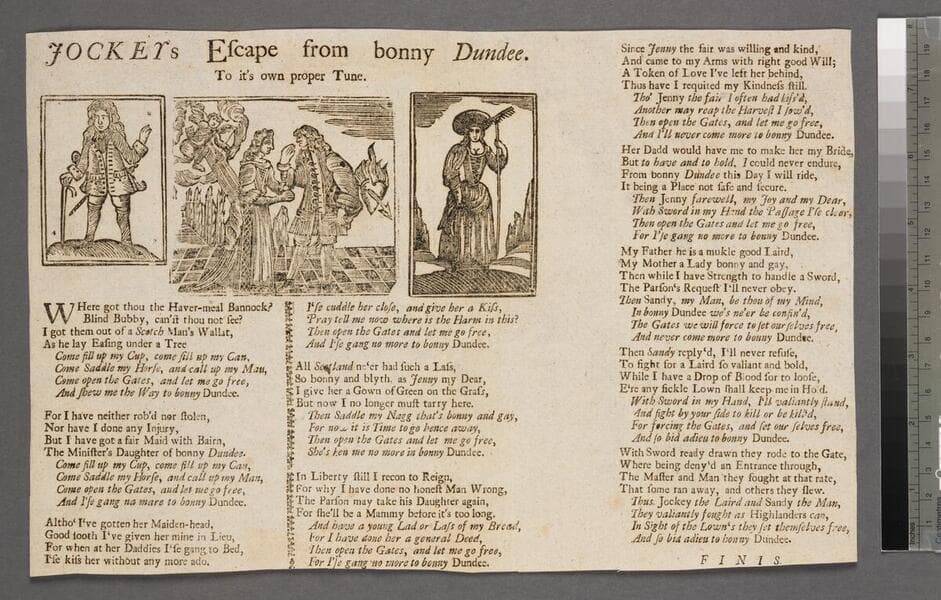 JOCKEYs Eſcape from bonny Dundee.
To it's own proper Tune.
WHere got thou the Haver-meal Bannock?
Blind Bubby, can'ſt thou not ſee?
I got them out of a Scotch Man's Wallat,
As he lay Eaſing under a Tree
Come fill up my Cup, come fill up my Can,
Come Saddle my Horſe, and call up my Man,
Come open the Gates, and let me go free,
And ſhew me the Way to bonny Dundee.
For I have neither rob'd nor ſtolen,
Nor have I done any Injury,
But I have got a fair Maid with Bairn,
The Miniſter's Daughter of bonny Dundee.
Come fill up my Cup, come fill up my Can,
Come Saddle my Horſe, and call up my Man,
Come open the Gates, and let me go free,
And I'ſe gang no mare to bonny Dundee.
Altho' I've gotten her Maiden-head,
Good ſooth I've given her mine in Lieu,
For when at her Daddies I'ſe gang to Bed,
I'ſe kiſs her without any more ado.
I'ſe cuddle her cloſe, and give her a Kiſs,
Pray tell me now where is the Harm in this?
Then open the Gates and let me go free,
And I'ſe gang no more to bonny Dundee.
All Scotland ne'er had ſuch a Laſs,
So bonny and blyth, as Jenny my Dear,
I give her a Gown of Green on the Graſs,
But now I no longer muſt tarry here.
Then Saddle my Nagg that's bonny and gay,
For now it is Time to go hence away,
Then open the Gates and let me go free,
She's ken me no more in bonny Dundee.
In Liberty ſtill I recon to Reign,
For why I have done no honeſt Man Wrong,
The Parſon may take his Daughter again,
For ſhe'll be a Mammy before it's too long.
And have a young Lad or Laſs of my Breed,
For I have done her a general Deed,
Then open the Gates, and let me go free,
For I'ſe gang no more to bonny Dundee.
Since Jenny the fair was willing and kind,
And came to my Arms with right good Will;
A Token of Love I've left her behind,
Thus have I requited my Kindneſs ſtill.
Tho' Jenny the fair I often had kiſs'd,
Another may reap the Harveſt I ſow'd,
Then open the Gates, and let me go free,
And I'll never come more to bonny Dundee.
Her Dadd would have me to make her my Bride,
But to have and to hold, I could never endure,
From bonny Dundee this Day I will ride,
It being a Place not ſafe and ſecure.
Then Jenny farewell, my Joy and my Dear,
With Sword in my Hand the Paſſage I'ſe clear,
Then open the Gates and let me go free,
For I'ſe gang no more to bonny Dundee.
My Father he is a mukle good Laird,
My Mother a Lady bonny and gay,
Then while I have Strength to handle a Sword,
The Parſon's Requeſt I'll never obey.
Then Sandy, my Man, be thou of my Mind,
In bonny Dundee we's ne'er be confin'd,
The Gates we will force to ſet ourſelves free,
And never come more to bonny Dundee.
Then Sandy reply'd, I'll never refuſe,
To fight for a Laird ſo valiant and bold,
While I have a Drop of Blood for to looſe,
E're any fickle Lown ſhall keep me in Hold.
With Sword in my Hand, I'll valiantly ſtand,
And fight by your ſide to kill or be kill'd,
For forcing the Gates, and ſet our ſelves free,
And ſo bid adieu to bonny Dundee.
With Sword ready drawn they rode to the Gate,
Where being deny'd an Entrance through,
The Maſter and Man they fought at that rate,
That ſome ran away, and others they ſlew.
Thus Jockey the Laird and Sandy the Man,
They valiantly fought as Highlanders can,
In Sight of the Lown's they ſet themſelves free,
And ſo bid adieu to bonny Dundee.
FINIS.